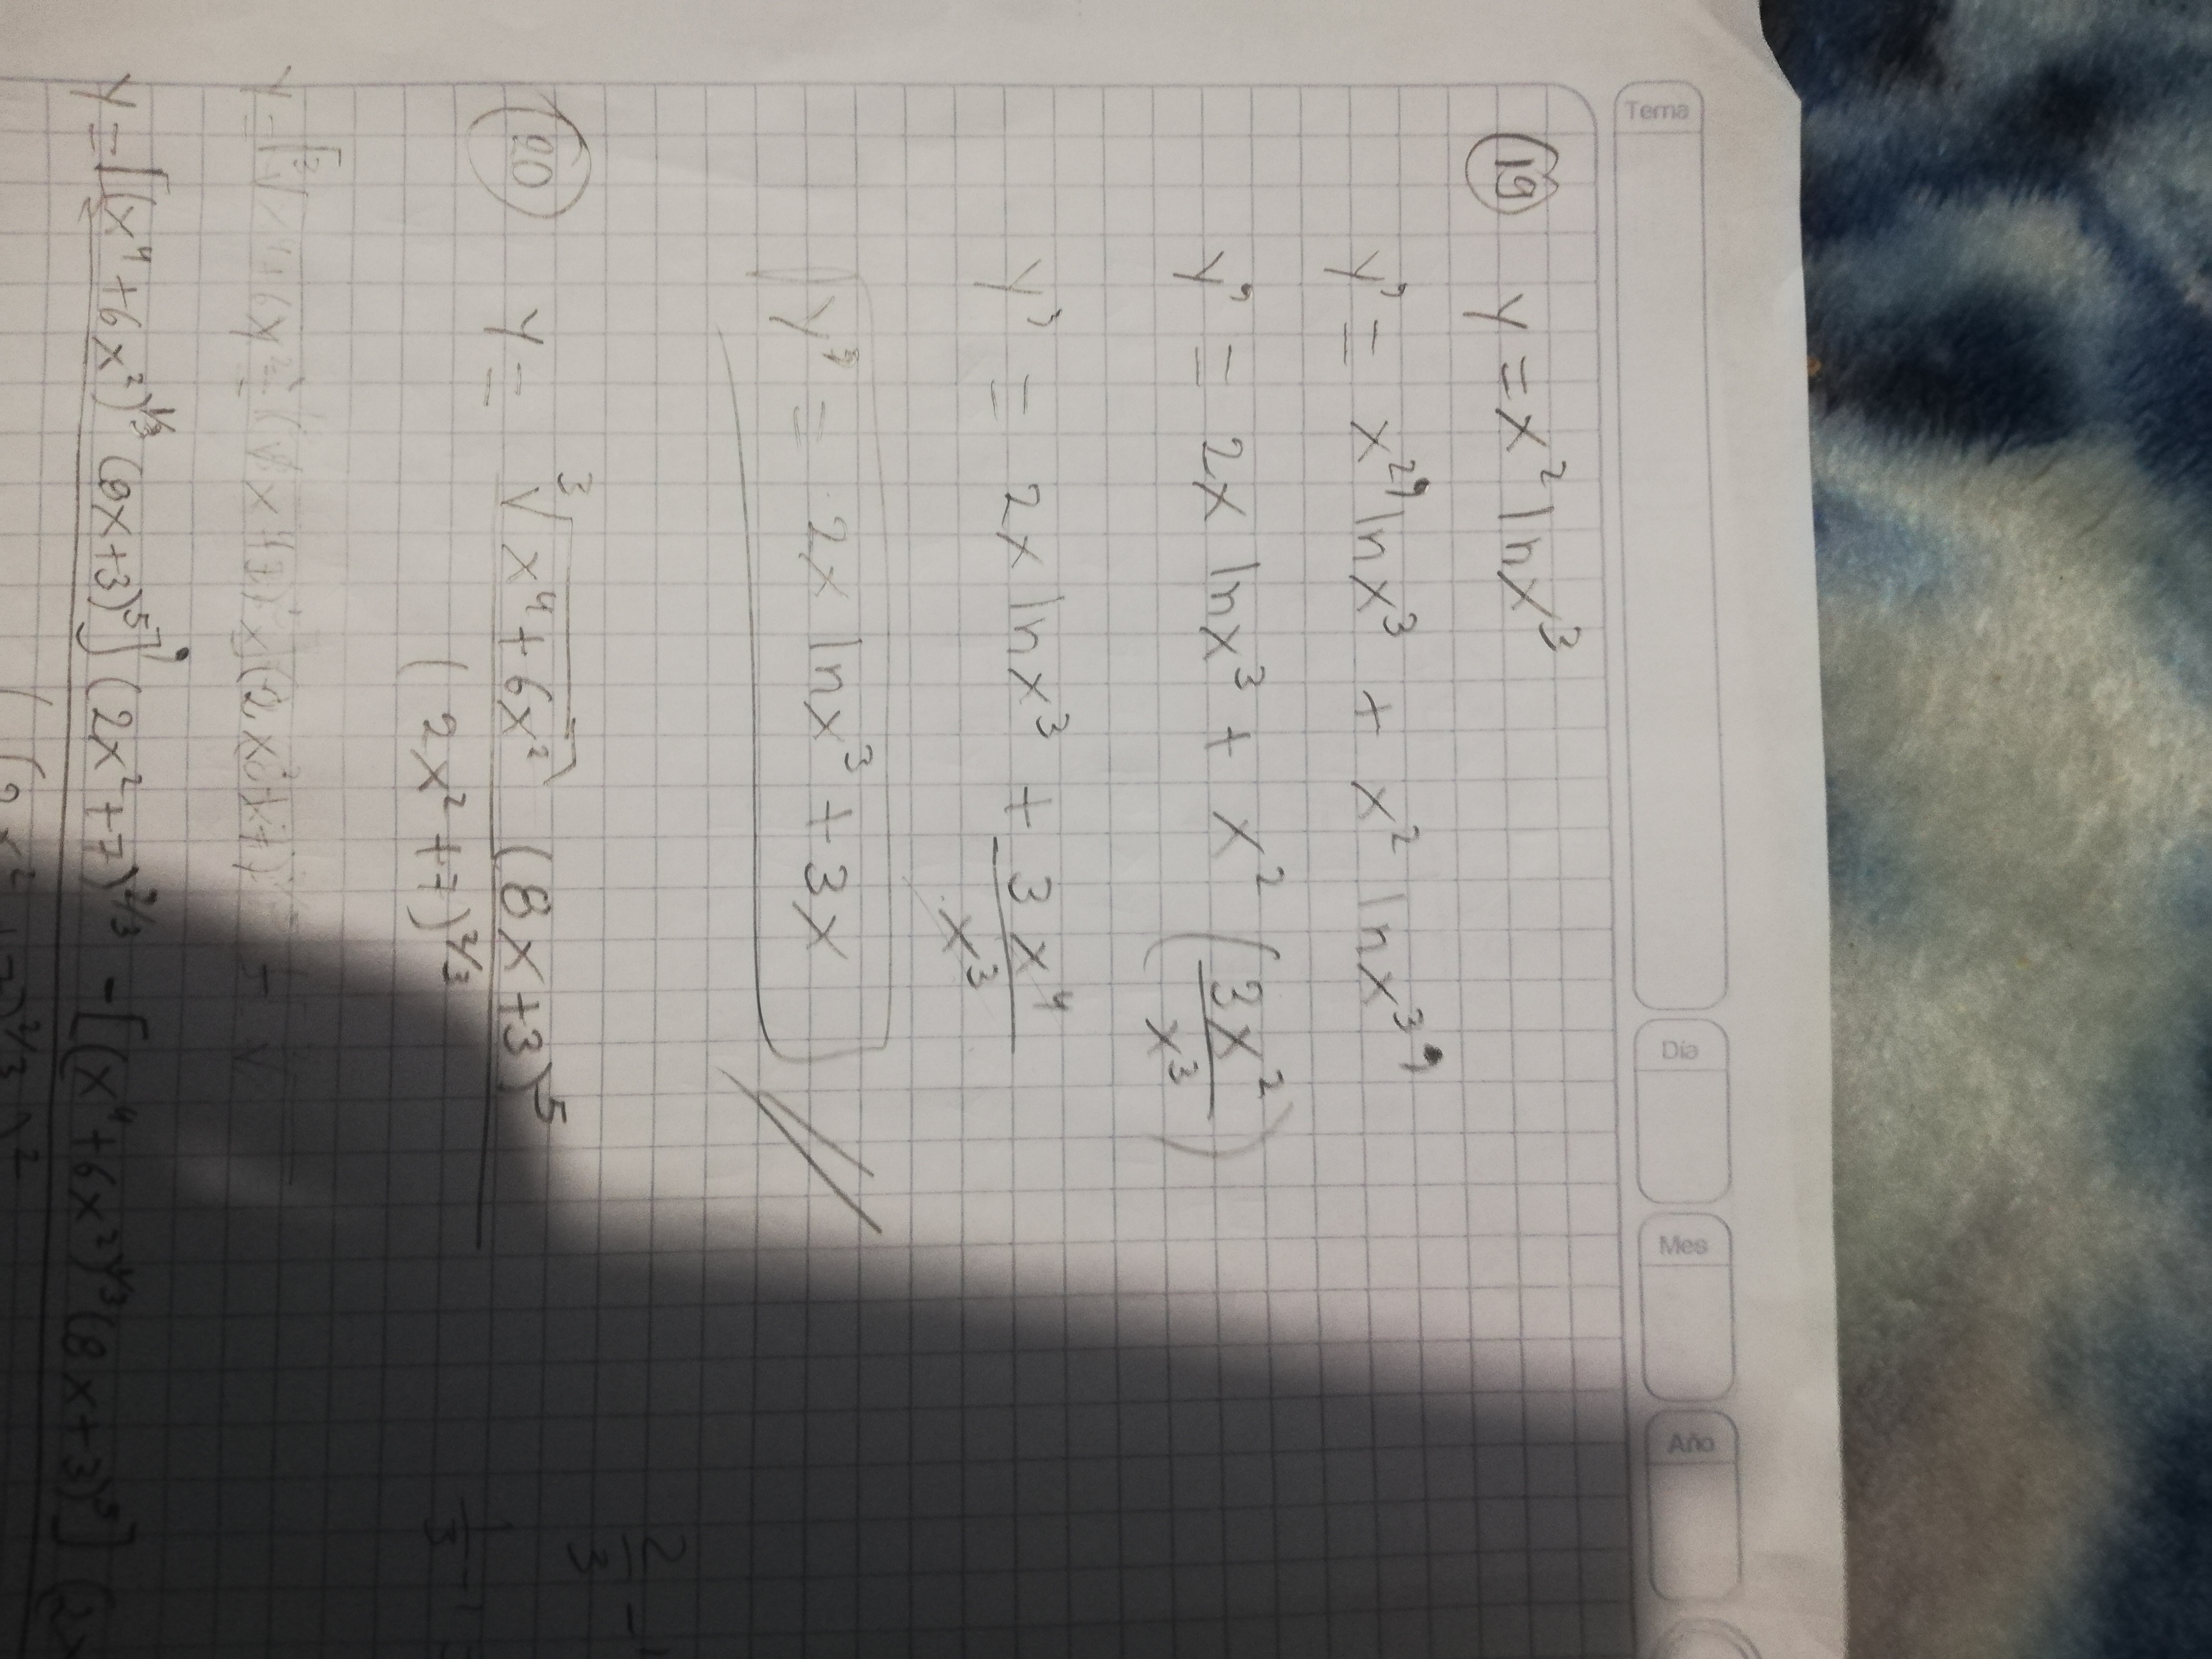 Tema
Día
Mes
Año
19 y = x² ln x³
y' = x²' ln x³ + x² ln x³'
y' = 2x ln x³ + x² (3x²/x³)
y' = 2x ln x³ + 3x⁴/x³
y' = 2x ln x³ + 3x
20 y = ∛(x⁴ + 6x²) (8x+3)⁵
(2x² + 7)^2/3
2/3 - 1
1/3 - 1
y = [(x⁴ + 6x²)^1/3 (8x+3)⁵]' (2x² + 7)^2/3 - [(x⁴ + 6x²)^1/3 (8x+3)⁵] (2x